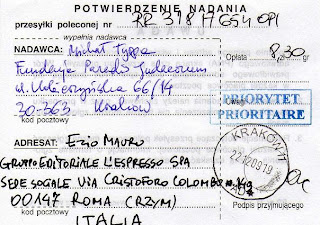 POTWIERDZENIE NADANIA
przesyłki poleconej nr RR 318
wypełnia nadawca
NADAWCA: Michał
Fundacja Pardes Judaeorum
66/14
30-363 Kraków
kod pocztowy
Opłata 8,30 gr
PRIORYTET
PRIORITAIRE
ADRESAT: Ezio MAURO
GRUPPO EDITORIALE L'ESPRESSO SPA
SEDE SOCIALE VIA CRISTOFORO COLOMBO
00147 ROMA (RZYM)
kod pocztowy
ITALIA
KRAKÓW 11
22.12.09.19
Podpis przyjmującego